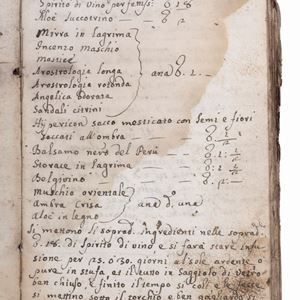 Spirito di Vino per fem: ℥ 18
Aloe Succotrino — ℥ 2
Mirra in lagrima
Incenso Maschio
Mastice
Arostrologia longa ana ℥. 1.
Arostrologia rotonda
Angelica odorata
Sandali citrini
Hypericon sacco mesticato con Semi e fiori
Seccati all'ombra — ℥
Balsamo nero del Perù — ℥. 1.
Storace in lagrima — ℥. 1.
Belgivino — ℥.
Muschio orientale
Ambra Grisa ana
Aloe in legno
Si mettono li soprad. ingredienti nelle soprad.
℥. 18. di Spirito di vino e si farà stare infu-
sione per 25. ò 30. giorni al sole ardente o
pure in stufa et il tutto in Saggiolo di Vetro
ben chiuso, e finito il tempo si coli e le fecce
si mettino sotto il torchio e ben